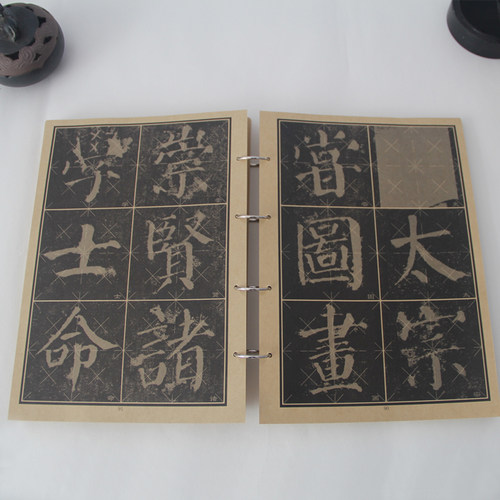 太宗
嘗圖畫
崇賢諸
學士命